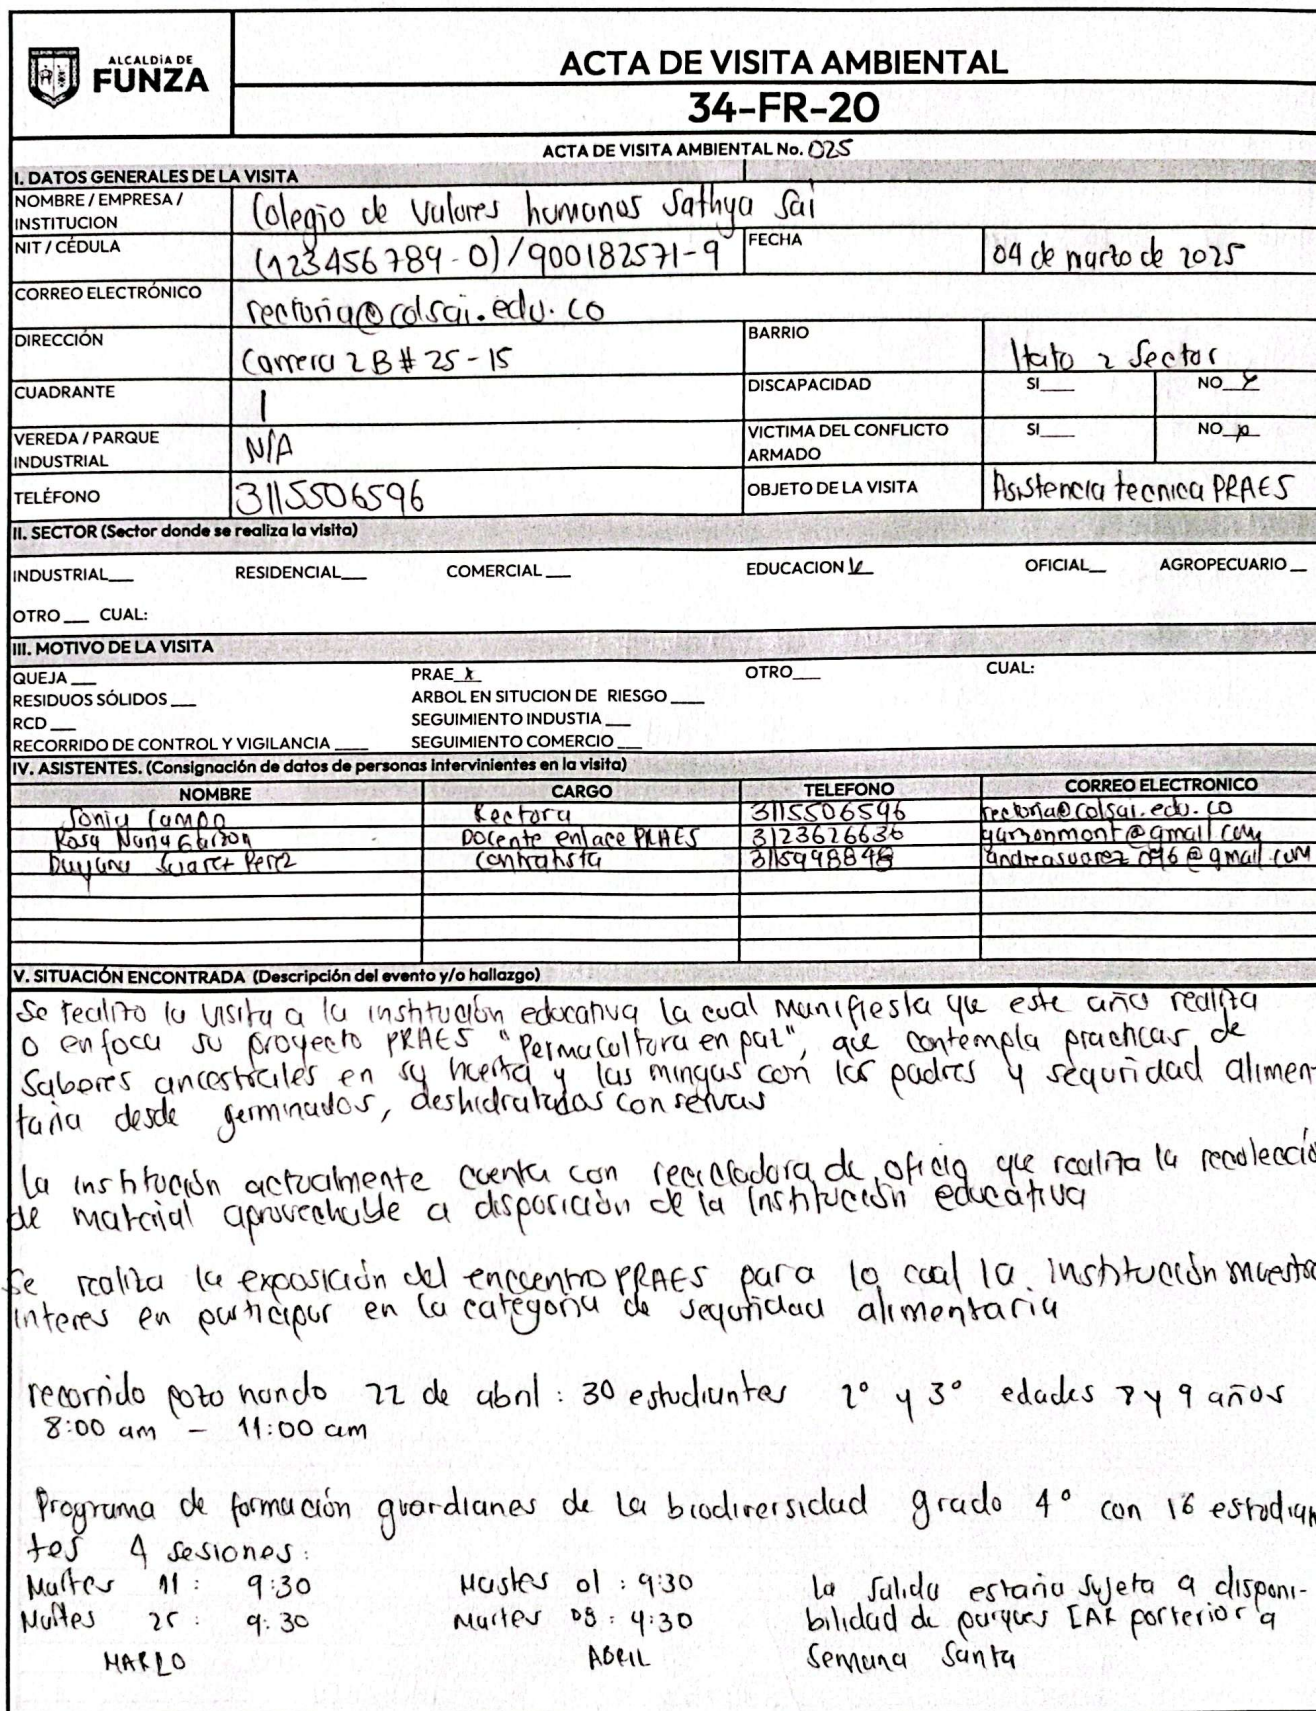 ALCALDÍA DE
FUNZA
ACTA DE VISITA AMBIENTAL
34-FR-20
ACTA DE VISITA AMBIENTAL No. 025
I. DATOS GENERALES DE LA VISITA
NOMBRE / EMPRESA / INSTITUCION Colegio de Valores humanos Sathya Sai
NIT / CÉDULA (123456789-0)/900182571-9 FECHA 04 de marzo de 2025
CORREO ELECTRÓNICO rectoria@colsai.edu.co
DIRECCIÓN Carrera 2B # 25-15 BARRIO Hato 2 Sector
CUADRANTE 1 DISCAPACIDAD SI___ NO_x_
VEREDA / PARQUE INDUSTRIAL N/A VICTIMA DEL CONFLICTO ARMADO SI___ NO_x_
TELÉFONO 3115506596 OBJETO DE LA VISITA Asistencia tecnica PRAES
II. SECTOR (Sector donde se realiza la visita)
INDUSTRIAL___ RESIDENCIAL___ COMERCIAL___ EDUCACION_x_ OFICIAL__ AGROPECUARIO__
OTRO ___ CUAL:
III. MOTIVO DE LA VISITA
QUEJA ___ PRAE_x_ OTRO___ CUAL:
RESIDUOS SÓLIDOS ___ ARBOL EN SITUCION DE RIESGO ____
RCD ___ SEGUIMIENTO INDUSTIA ___
RECORRIDO DE CONTROL Y VIGILANCIA ____ SEGUIMIENTO COMERCIO ___
IV. ASISTENTES. (Consignación de datos de personas intervinientes en la visita)
NOMBRE CARGO TELEFONO CORREO ELECTRONICO
Sonia Rectora 3115506596 rectoria@colsai.edu.co
Rosa Maria Garzon Docente enlace PRAES 3123626636 garzonmont@gmail.com
Suarez Perez Contratista 3115998848 andreasuarez096@gmail.com
V. SITUACIÓN ENCONTRADA (Descripción del evento y/o hallazgo)
Se realizo la visita a la institución educativa la cual manifiesta que este año realiza
o enfoca su proyecto PRAES "Permacultura en paz", que contempla practicas de
Saberes ancestrales en su huerta y las mingas con los padres y seguridad alimen-
taria desde germinados, deshidratados conservas
la institución actualmente cuenta con recicladora de oficio que realiza la recolecció
de material aprovechable a disposición de la institución educativa
Se realiza la exposición del encuentro PRAES para lo cual la institución muestra
interes en participar en la categoria de seguridad alimentaria
recorrido pozo hondo 22 de abril : 30 estudiantes 2° y 3° edades 8 y 9 años
8:00 am - 11:00 am
Programa de formación guardianes de la biodiversidad grado 4° con 16 estudian
tes 4 sesiones:
Martes 11 : 9:30 Martes 01 : 9:30 la salida estaria sujeta a disponi-
Martes 25 : 9:30 Martes 08 : 9:30 bilidad de parques CAR posterior a
MARZO ABRIL Semana Santa